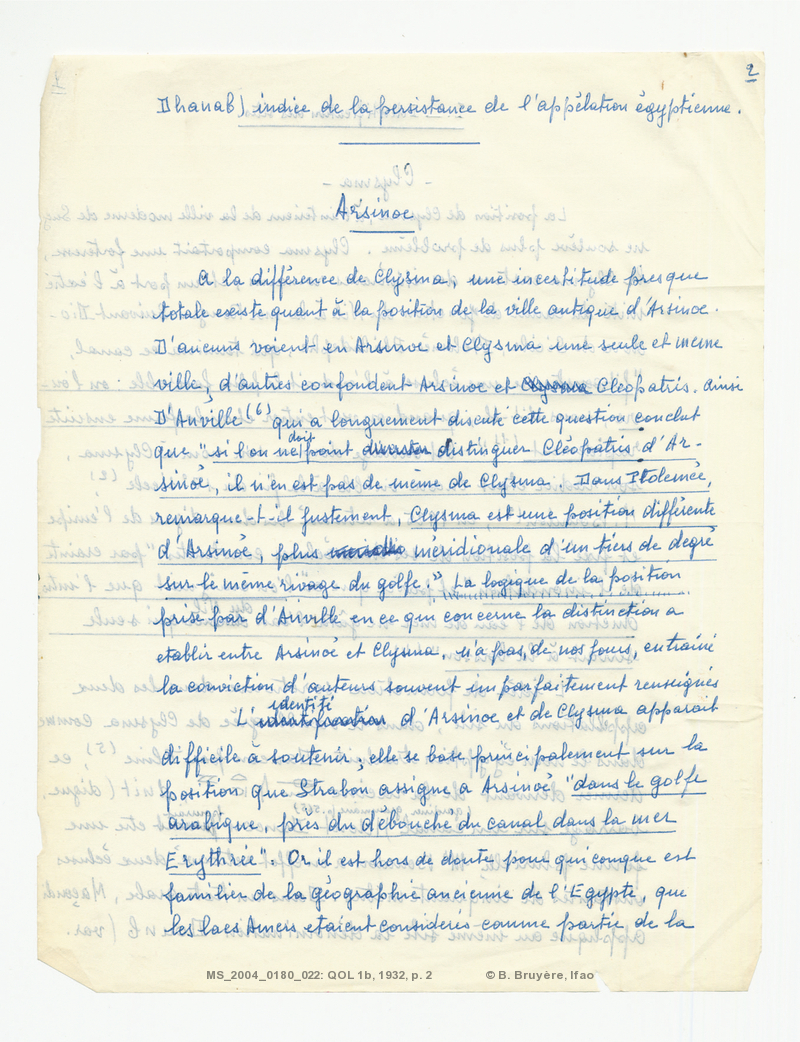 2
Dhanab) indice de la persistance de l'appélation égyptienne.
Arsinoe
A la différence de Clysma, une incertitude presque
totale existe quant à la position de la ville antique d'Arsinoe.
D'aucuns voient en Arsinoe et Clysma une seule et meme
ville, d'autres confondent Arsinoe et Clysma Cleopatris. Ainsi
D'Anville (6) qui a longuement discuté cette question conclut
que "si l'on ne doit point distinguer Cléopatris d'Ar-
sinoé, il n'en est pas de même de Clysma. Dans Ptolemée,
remarque-t-il justement, Clysma est une position différente
d'Arsinoé, plus méridionale d'un tiers de degré
sur le même rivage du golfe." La logique de la position
prise par d'Anville en ce qui concerne la distinction a
etablir entre Arsinoé et Clysma, n'a pas, de nos jours, entrainé
la conviction d'auteurs souvent imparfaitement renseignés
L'identité d'Arsinoe et de Clysma apparait
difficile à soutenir; elle se base principalement sur la
position que Strabon assigne a Arsinoé "dans le golfe
arabique, près du débouché du canal dans la mer
Erythrée". Or il est hors de doute pour quiconque est
familier de la géographie ancienne de l'Egypte, que
les lacs Amers etaient considerés comme partie de la
MS_2004_0180_022: QOL 1b, 1932, p. 2 © B. Bruyère, Ifao